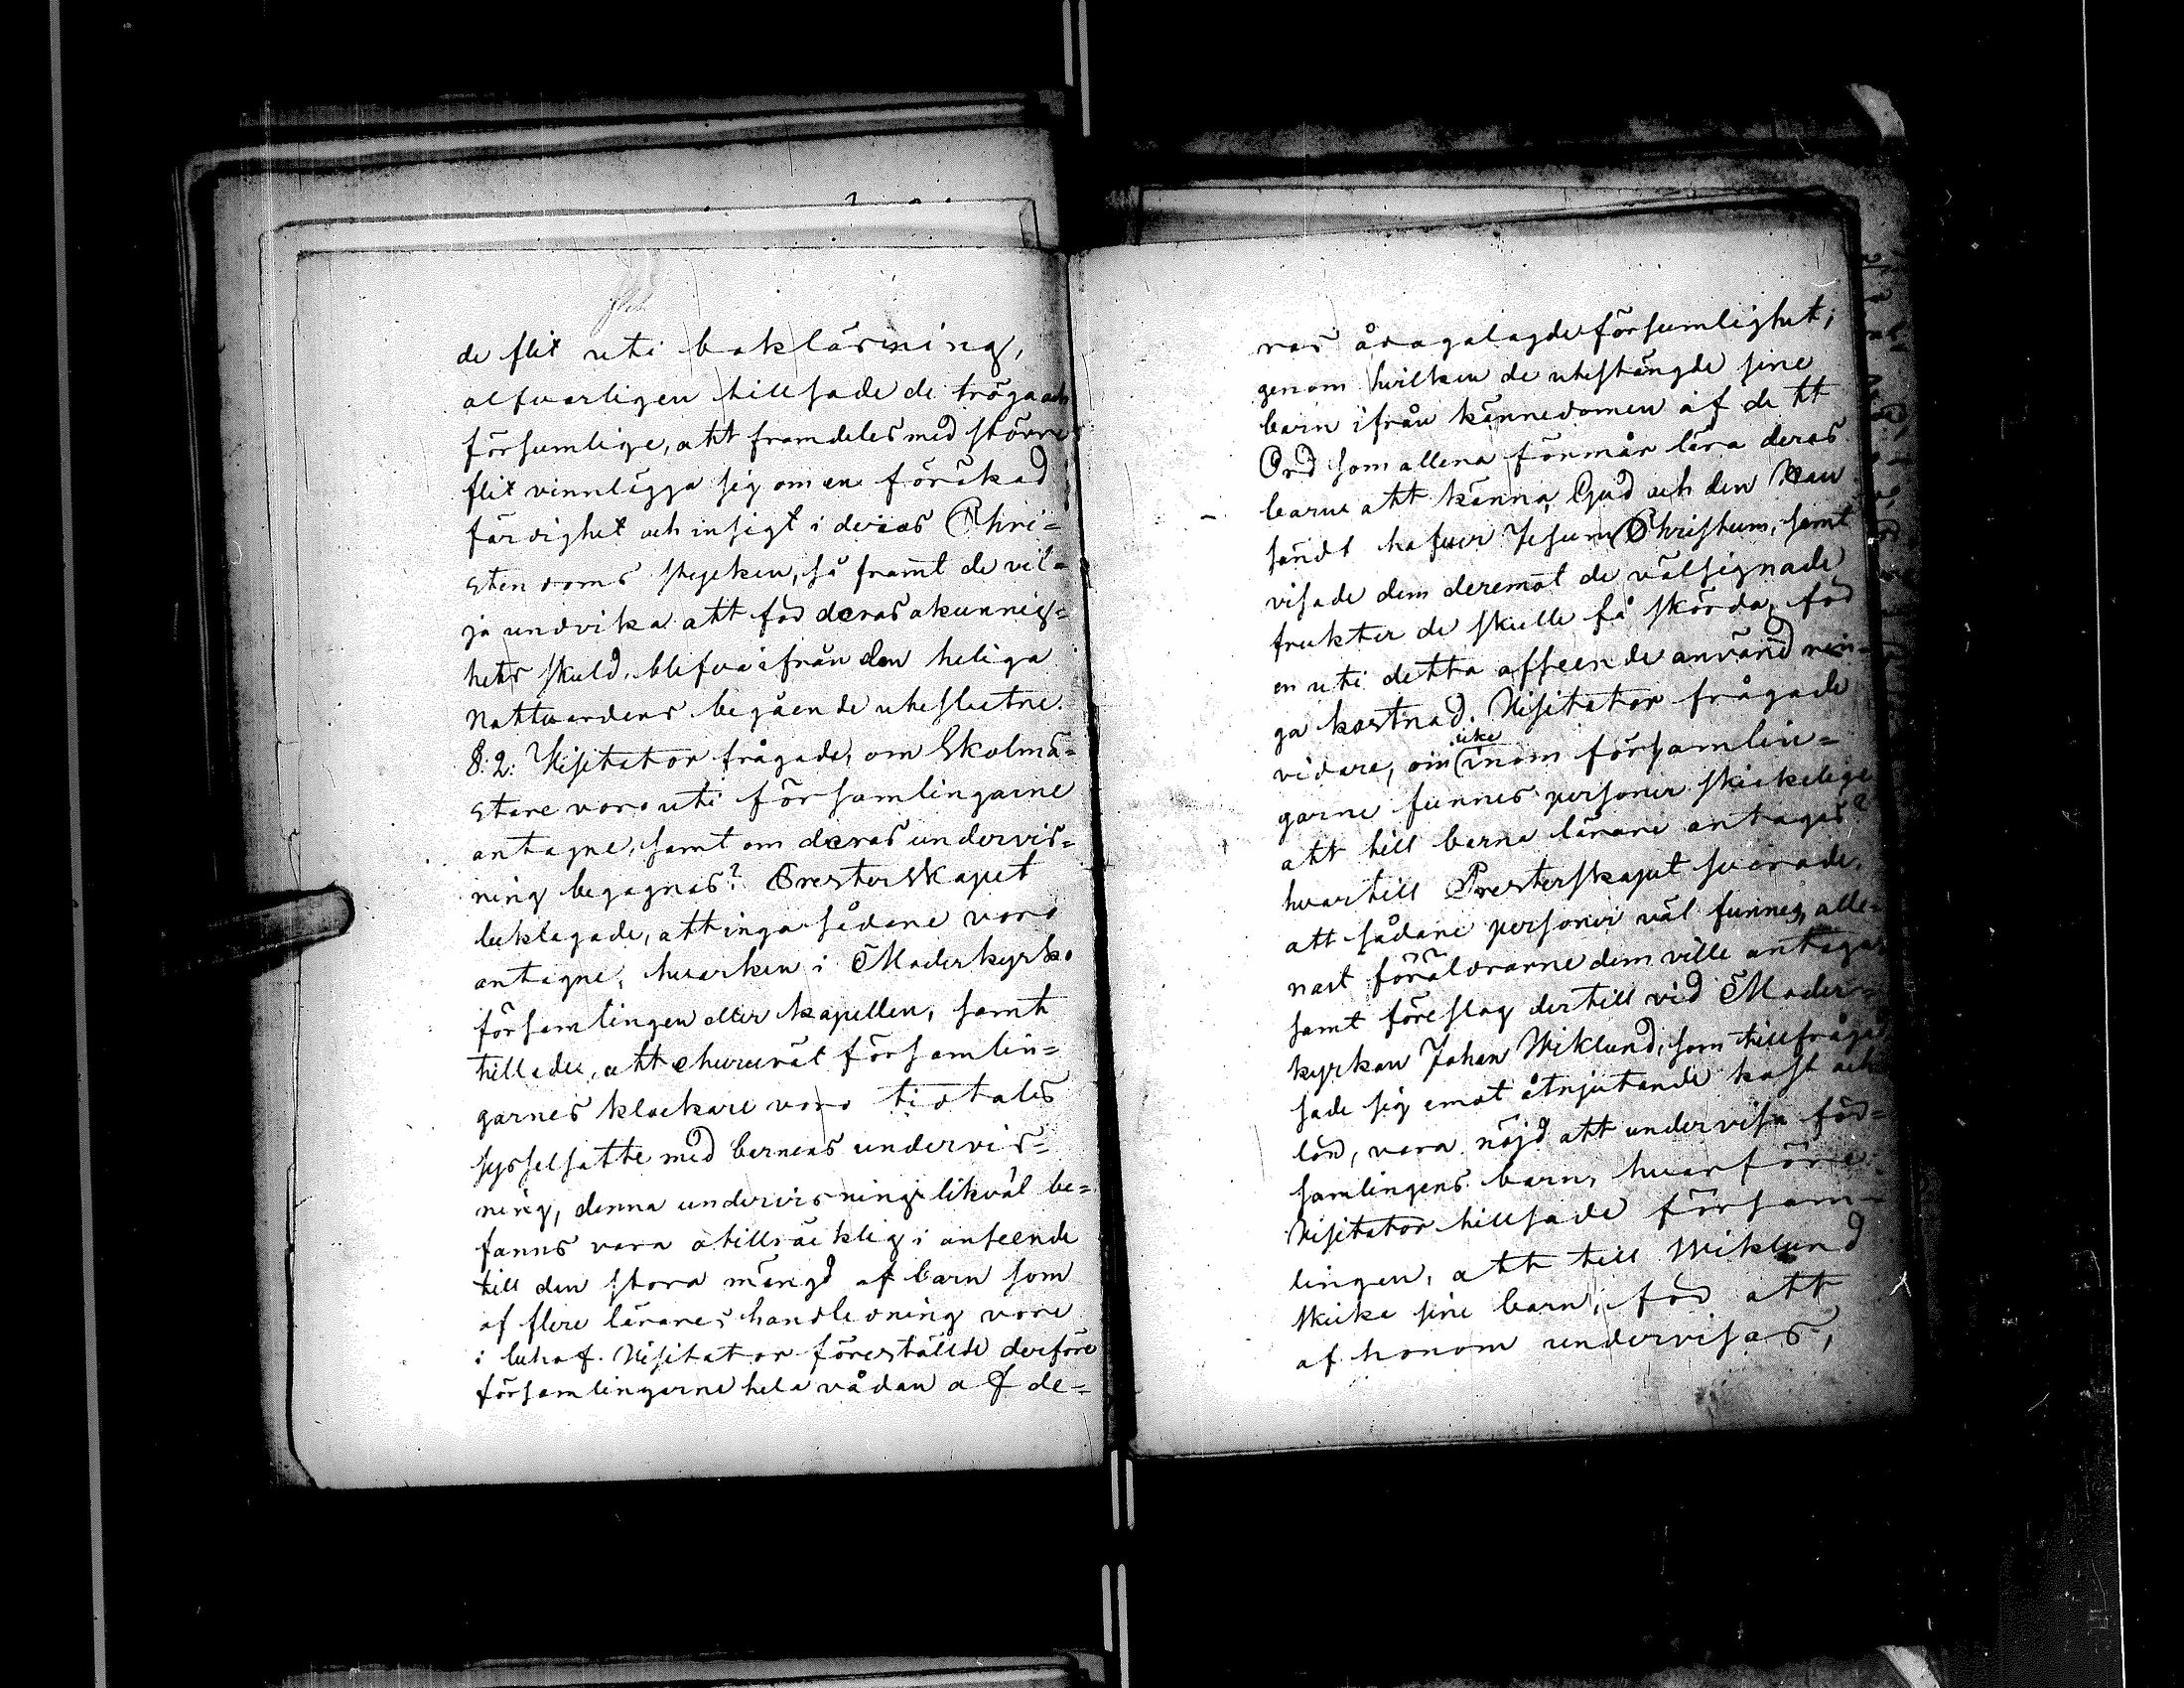 de flit uti bokläsning,
alfvarligen tillsade de tröga och
försumlige, att framdeles med större
flit vinnlägga sig om en förökad
färdighet och insigt i deras Chri=
stendoms stycken, så framt de vil=
ja undvika att för deras okunnig=
hets skuld, blifva ifrån den heliga
Nattvardens begående uteslutne.
§. 2: Visitator frågade, om Skolmä=
stare voro uti församlingarne
antagne, samt om deras undervis=
ning begagnas? Presterskapet
beklagade, att inga sådane voro
antagne, hvarken i Moderkyrko
församlingen eller kapellen, samt
tillade, att ehuruväl församlin=
garnes klockare voro tiotals
sysselsatte med barnens undervis=
ning, denna undervisning likväl be=
fanns vara otillräcklig i anseende
till den stora mängd af barn som
af flere lärares handledning vore
i behof. Visitator föreställde derföre
församlingarne hela vådan af de=
ras ådagalagde försumlighet,
genom hvilken de utestängde sine
barn ifrån kännedomen af dett
Ord som allena förmår lära deras
barn att känna Gud och den Han
sändt hafver Jesum Christum, samt
visade dem deremot de välsignade
frukter de skulle få skörda, för
en uti detta afseende använd rin=
ga kostnad. Visitator frågade
vidare, om icke inom församlin=
garne funnes personer skickelige
att till barna lärare antagas?
hvartill Presterskapet svarade,
att sådane personer väl funnes, alle=
nast föräldrarne dem ville antaga,
samt föreslog dertill vid Moder=
kyrkan Johan Wiklund, som tillfrågad
sade sig emot åtnjutande kost och
lön, vara nöjd att undervisa för=
samlingens barn, hvarföre
Visitator tillsade försam=
lingen, att till Wiklund
skicka sine barn, för att
af honom undervisas,